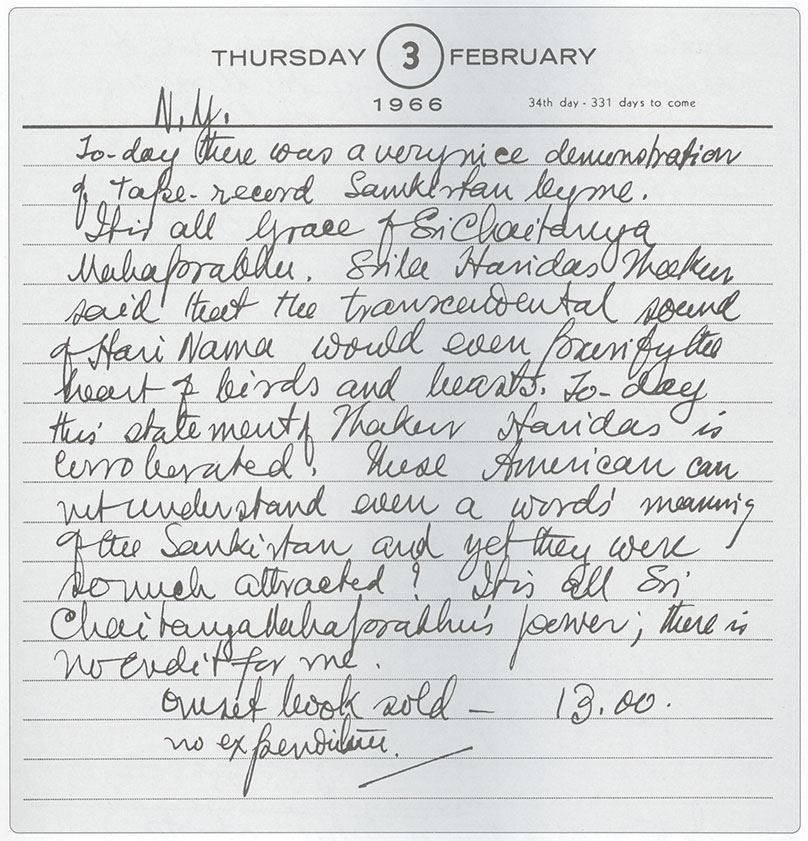 THURSDAY 3 FEBRUARY
1966 34th day - 331 days to come
N.Y.
To-day there was a very nice demonstration
of tape-record Samkirtan by me.
It is all Grace of Sri Chaitanya
Mahaprabhu. Srila Haridas Thakur
said that the transcendental sound
of Hari Nama would even purify the
heart of birds and beasts. To-day
this statement of Thakur Haridas is
corroberated. These American can
not understand even a words' meaning
of the Sankirtan and yet they were
so much attracted! It is all Sri
Chaitanya Mahaprabhu's power; there is
no credit for me.
one set book sold — 13.00.
no expenditure.